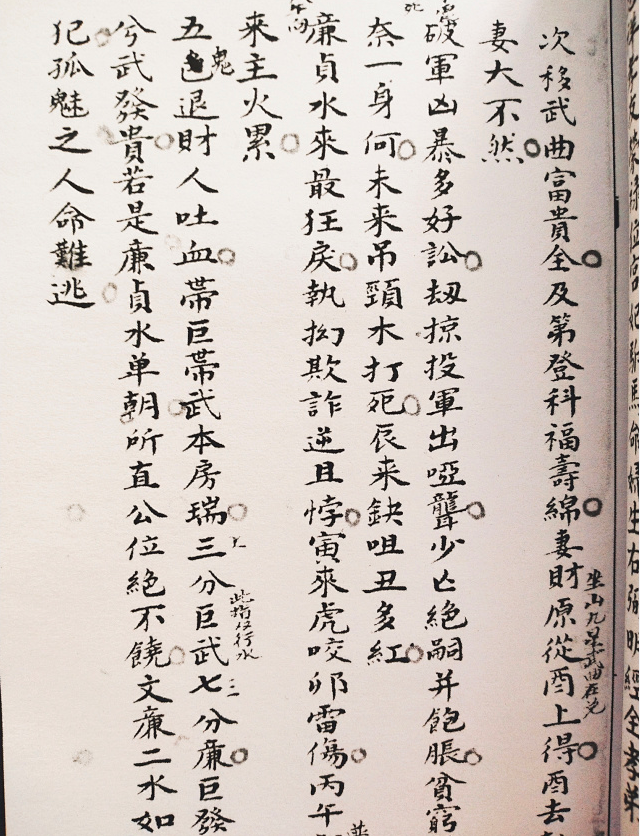 次移武曲富貴全及第登科福壽綿妻財原從酉上得酉去
坐山九星武曲在兌
妻大不然
破軍凶暴多好訟劫掠投軍出啞聾少亡絕嗣并飽脹貧窮
奈一身何未来吊頸木打死辰来缺咀丑多紅
廉貞水來最狂戾執拗欺詐逆且悖寅來虎咬卯雷傷丙午
来主火累
五鬼退財人吐血帶巨帶武本房瑞三分巨武七分廉巨發
此指行水
兮武發貴若是廉貞水单朝所直公位絕不饒文廉二水如
犯孤魅之人命難逃